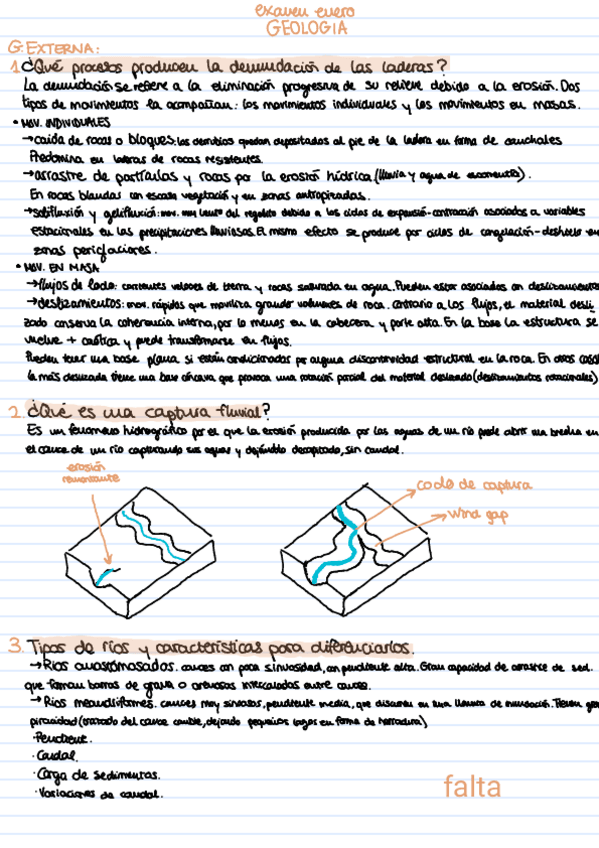 examen enero
GEOLOGIA
G. EXTERNA:
1. ¿Qué procesos producen la denundación de las laderas?
La denudación se refiere a la eliminación progresiva de su relieve debido a la erosión. Dos
tipos de movimientos la acompañan: los movimientos individuales y los movimientos en masas.
• MOV. INDIVIDUALES
→ caída de rocas o bloques: los derrubios quedan depositados al pie de la ladera en forma de canchales
Predomina en laderas de rocas resistentes.
→ arrastre de partículas y rocas por la erosión hídrica (lluvia y agua de escorrentía).
En rocas blandas con escasa vegetación y en zonas antropizadas.
→ solifluxión y gelifluxión: mov. muy lento del regolito debido a los ciclos de expansión-contracción asociados a variables
estacionales en las precipitaciones lluviosas. El mismo efecto se produce por ciclos de congelación-deshielo en
zonas periglaciares.
• MOV. EN MASA
→ flujos de lodo: corrientes veloces de tierra y rocas saturada en agua. Pueden estar asociados an deslizamientos
→ deslizamientos: mov. rápidos que moviliza grandes volumenes de roca. Contrario a los flujos, el material desli
zado conserva la coherencia interna, por lo menos en la cabecera y parte alta. En la base la estructura se
vuelve + caótica y puede transformarse en flujos.
Pueden tener una base plana si están condicionadas por alguna discontinuidad estructural en la roca. En otros casos
la más deslizada tiene una base cóncava que provoca una rotación parcial del material deslizado (deslizamientos rotacionales)
2. ¿Qué es una captura fluvial?
Es un fenómeno hidrográfico por el que la erosión producida por las aguas de un río puede abrir una brecha en
el cauce de un río capturando sus aguas y dejándolo decapitado, sin caudal.
erosión
remontante
codo de captura
wind gap
3. Tipos de ríos y características para diferenciarlos.
→ Ríos anastomosados. cauces con poca sinuosidad, con pendiente alta. Gran capacidad de arrastre de sed.
que forman barras de grava o arenosas intercaladas entre cauces.
→ Ríos meandriformes. cauces muy sinuosos, pendiente media, que discurren en una llanura de inundación. Tienen gra
(trazado del cauce cambie, dejando pequeños lagos en forma de herradura)
· Pendiente.
· Caudal.
· Carga de sedimentos.
· Variaciones de caudal.
falta